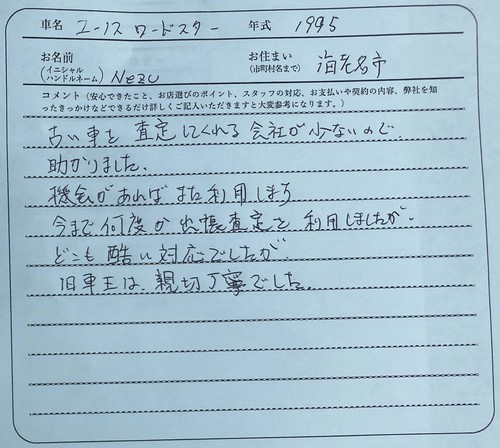 車名 ユーノス ロードスター 年式 1995
お名前 お住まい
(イニシャル (市町村名まで) 海老名市
ハンドルネーム) Nezu
コメント(安心できたこと、お店選びのポイント、スタッフの対応、お支払いや契約の内容、弊社を知
ったきっかけなどできるだけ詳しくご記入いただきますと大変参考になります。)
古い車を 査定してくれる会社が少ないので
助かりました.
機会があればまた利用します
今まで何度か出張査定を利用しましたが.
どこも酷い対応でしたが
旧車王は、親切丁寧でした.